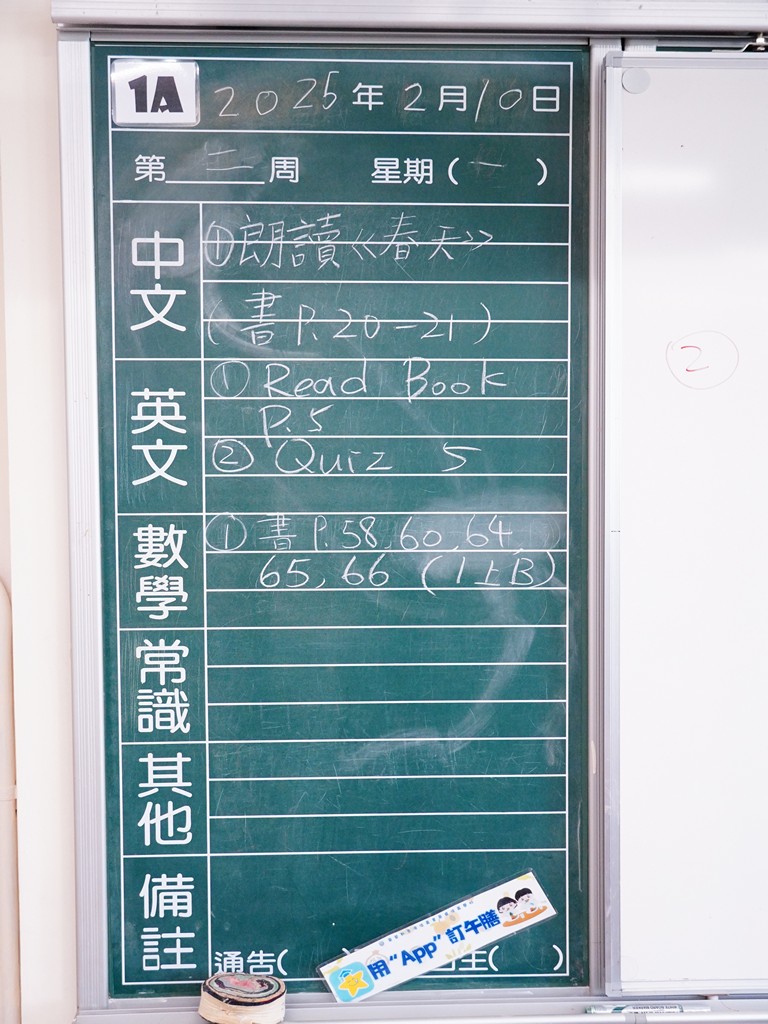 1A 2025年2月10日
第 二 周 星期 ( 一 )
中文
①朗讀《春天》
(書P.20-21)
英文
① Read Book
P.5
② Quiz 5
數學
① 書P.58,60,64,
65,66 (1上B)
常識
其他
備註
通告( ) 主( )
用"App"訂午膳
2